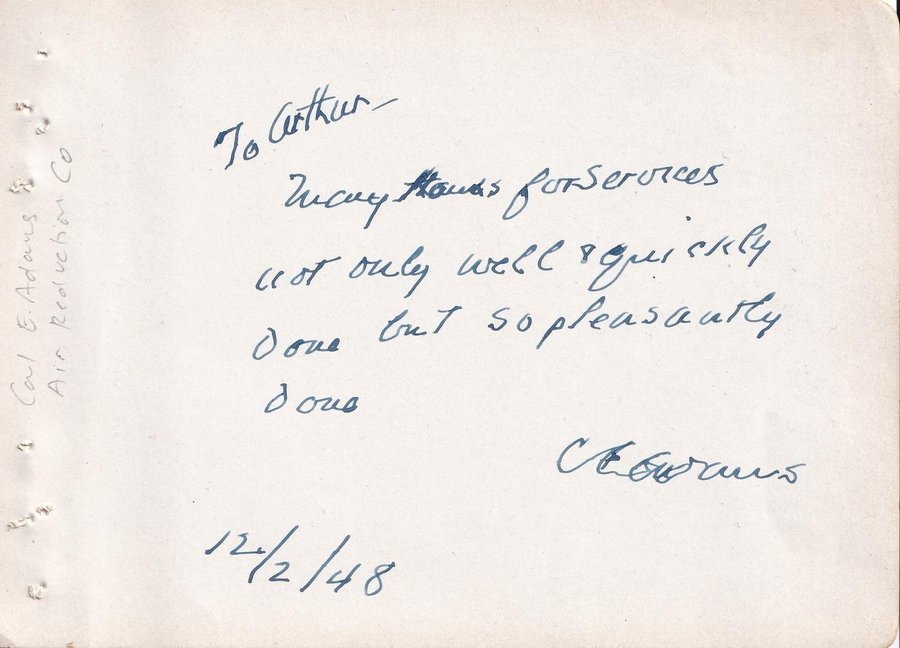 To Arthur -
Many thanks for services
not only well & quickly
done but so pleasantly
done
C E Adams
12/2/48
Carl E. Adams
Air Reduction Co